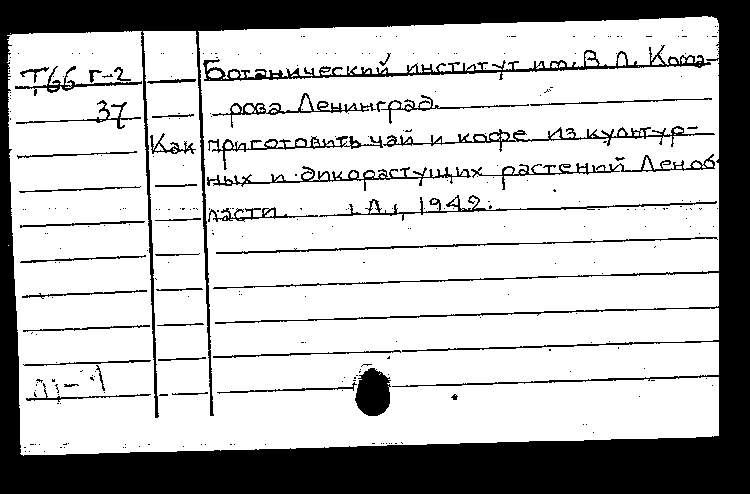 Т66 г-2 Ботанический институт им. В. Л. Кома-
37 рова. Ленинград.
Как приготовить чай и кофе из культур-
ных и дикорастущих растений Леноб-
ласти. Л., 1942.